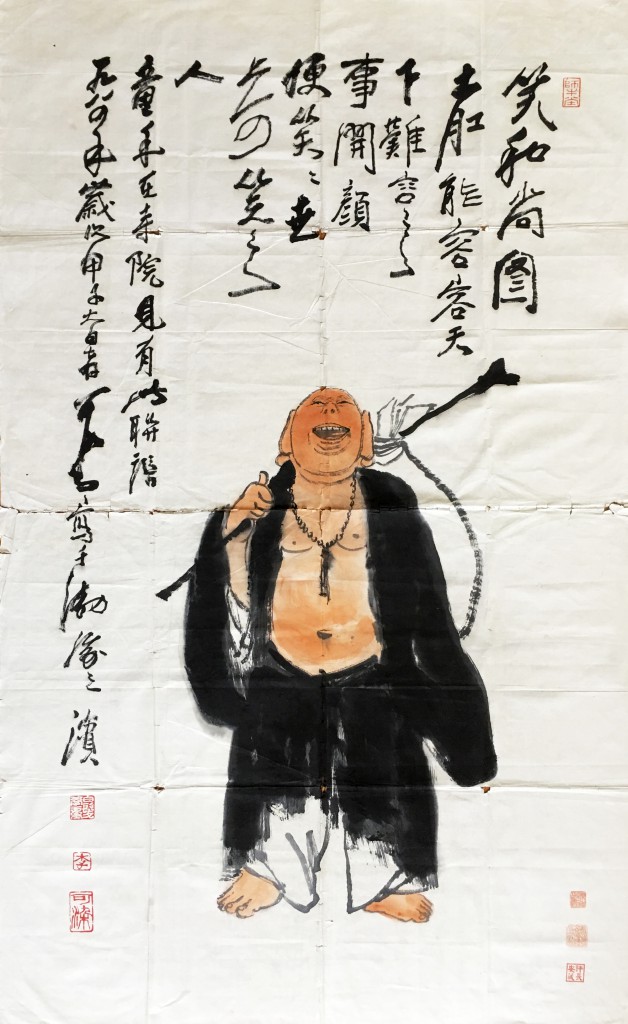 笑和尚圖
大肚能容容天
下難容之
事開顏
便笑〻世
上可笑之
人
童年在寺院見有此聯語
一九八四年歲次甲子 寫于渤海之濱
李
可